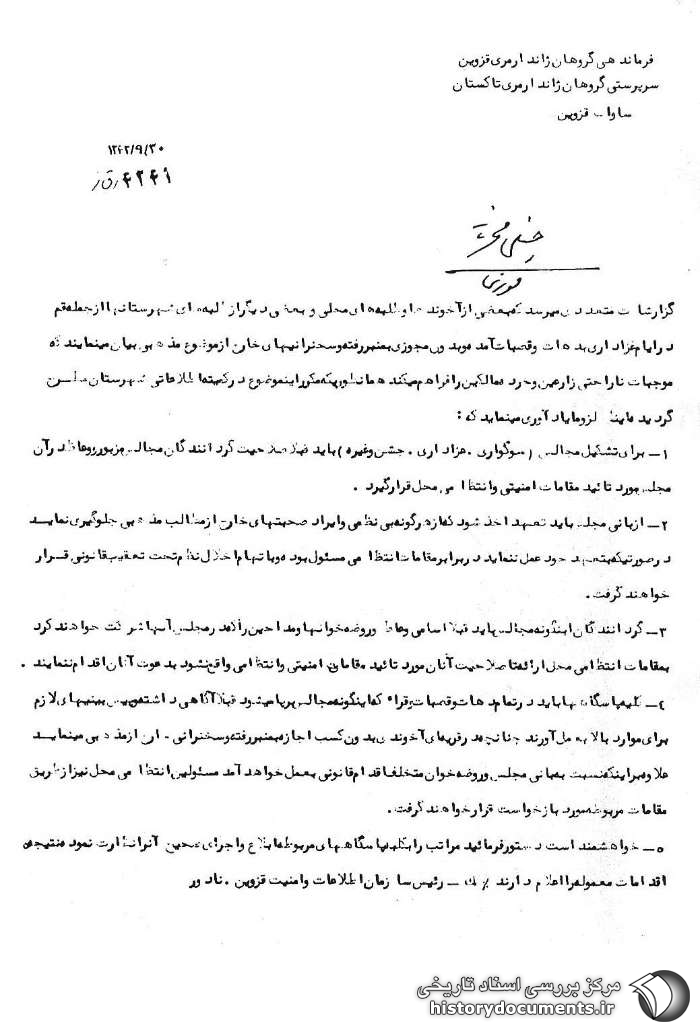 فرماندهی گروهان ژاندارمری قزوین
سرپرستی گروهان ژاندارمری تاکستان
ساواک قزوین
۱۳۴۲/۹/۳۰
۴۲۴۱
خیلی محرمانه
گزارشات متعددی میرسد که بعضی از آخوندها و طلبه‌های محلی و بعضی دیگر از طلبه‌های شهرستانها از جمله قم
در ایام عزاداری بدهات و قصبات آمده و بدون مجوزی بمنبر رفته و سخنرانیهای خارج از موضوع مذهبی بیان مینمایند که
موجبات ناراحتی زارعین و خرده مالکین را فراهم میکند همانطوریکه مکرر اینموضوع در کمیته اطلاعاتی شهرستان مطرح
گردیده لزوما یادآوری مینماید که :
۱ـ برای تشکیل مجالس (سوگواری . عزاداری . جشن وغیره) باید قبلا صلاحیت گردانندگان مجالس مزبور و وعاظ در آن
مجلس مورد تائید مقامات امنیتی و انتظامی محل قرار گیرد .
۲ـ از بانی مجلس باید تعهد اخذ شود که از هرگونه بی نظمی و ایراد صحبتهای خارج از مطالب مذهبی جلوگیری نماید
در صورتیکه بتعهد خود عمل ننماید در برابر مقامات انتظامی مسئول بوده و باتهام اخلال نظم تحت تعقیب قانونی قرار
خواهند گرفت .
۳ـ گردانندگان اینگونه مجالس باید قبلا اسامی وعاظ و روضه خوانها و مداحین را که در مجلس آنها شرکت خواهند کرد
بمقامات انتظامی محل ارائه تا صلاحیت آنان مورد تائید مقامات امنیتی و انتظامی واقع نشود بدعوت آنان اقدام ننمایند .
٤ـ کلیه پاسگاهها باید در تمام دهات و قصبات و قراء که اینگونه مجالس برپا میشود قبلا آگاهی داشته و پیش بینیهای لازم
برای موارد بالا بعمل آورند چنانچه در قریه‌ای آخوندی بدون کسب اجازه بمنبر رفته و سخنرانی خارج از مذهبی مینماید
علاوه بر اینکه نسبت به بانی مجلس و روضه خوان متخلف اقدام قانونی بعمل خواهد آمد مسئولین انتظامی محل نیز از طریق
مقامات مربوطه مورد بازخواست قرار خواهند گرفت .
۵ـ خواهشمند است دستور فرمائید مراتب را بکلیه پاسگاههای مربوطه ابلاغ و اجرای صحیح آنرا نظارت نموده نتیجه
اقدامات معموله را اعلام دارند ـ رئیس سازمان اطلاعات و امنیت قزوین .
مرکز بررسی اسناد تاریخی
historydocuments.ir